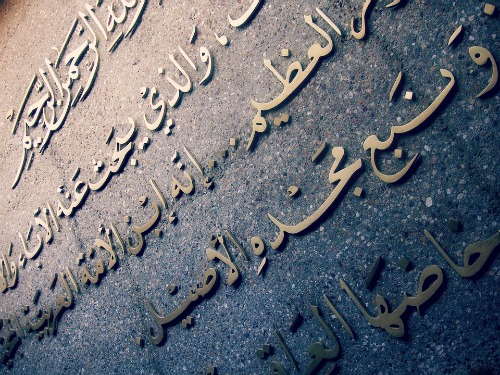 الله الرحمن الرحيم
والذي يبحث عنه الآباء
العظيم ... إنه ابن الأمة العربية
ونبع مجده الأصيل
حاضنها